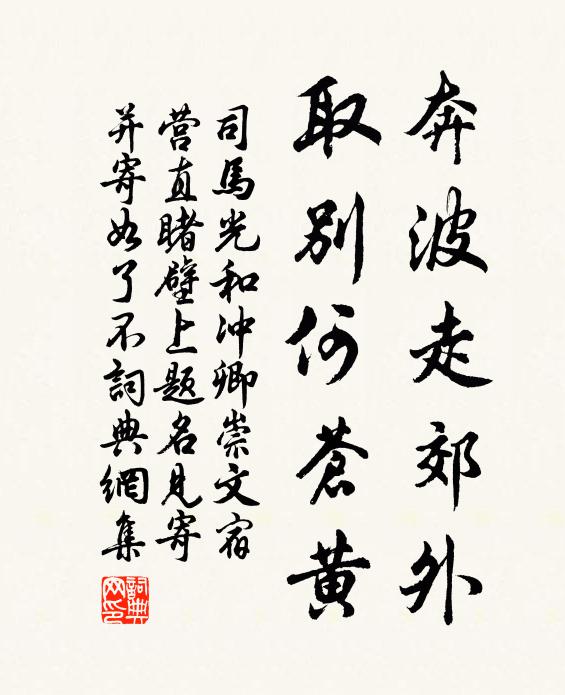 奔波走郊外
取別何蒼黃
司馬光和冲卿崇文宿
营直睹壁上题名见寄
并寄如了不詞典網集
詞典网印